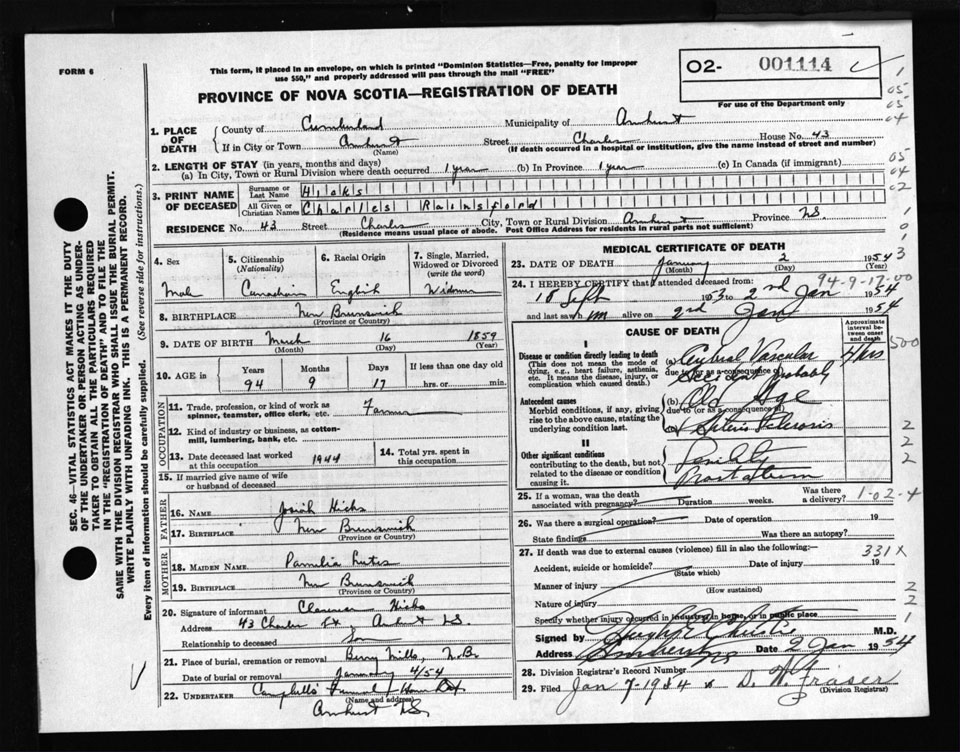 FORM 6
This form, if placed in an envelope, on which is printed "Dominion Statistics—Free, penalty for improper
use $50," and properly addressed will pass through the mail "FREE"
O2- 001114
For use of the Department only
PROVINCE OF NOVA SCOTIA—REGISTRATION OF DEATH
1. PLACE OF DEATH County of Cumberland Municipality of Amherst
If in City or Town Amherst (Name) Street Charles House No. 43
(If death occurred in a hospital or institution, give the name instead of street and number)
2. LENGTH OF STAY (in years, months and days)
(a) In City, Town or Rural Division where death occurred 1 year (b) In Province 1 year (c) In Canada (if immigrant)
3. PRINT NAME OF DECEASED Surname or Last Name Hicks
All Given or Christian Names Charles Rainsford
RESIDENCE No. 43 Street Charles City, Town or Rural Division Amherst Province N.S.
(Residence means usual place of abode. Post Office Address for residents in rural parts not sufficient)
4. Sex Male
5. Citizenship (Nationality) Canadian
6. Racial Origin English
7. Single, Married, Widowed or Divorced (write the word) Widower
8. BIRTHPLACE New Brunswick
(Province or Country)
9. DATE OF BIRTH March 16 1859
(Month) (Day) (Year)
10. AGE in Years 94 Months 9 Days 17 If less than one day old hrs. or min.
OCCUPATION
11. Trade, profession, or kind of work as spinner, teamster, office clerk, etc. Farmer
12. Kind of industry or business, as cotton-mill, lumbering, bank, etc.
13. Date deceased last worked at this occupation 1944
14. Total yrs. spent in this occupation
15. If married give name of wife or husband of deceased
FATHER
16. Name Josiah Hicks
17. Birthplace New Brunswick
(Province or Country)
MOTHER
18. MAIDEN NAME Pamilia Lutes
19. BIRTHPLACE New Brunswick
(Province or Country)
20. Signature of informant Clarence Hicks
Address 43 Charles St Amherst N.S.
Relationship to deceased Son
21. Place of burial, cremation or removal Berry Mills, N.B.
Date of burial or removal January 4/54
22. UNDERTAKER Campbells' Funeral Home
(Name and address)
Amherst N.S.
MEDICAL CERTIFICATE OF DEATH
23. DATE OF DEATH January 2 1954
(Month) (Day) (Year)
94-9-17-00
24. I HEREBY CERTIFY that I attended deceased from:
18 Sept 1953 to 2nd Jan 1954
and last saw him alive on 2nd Jan 1954
CAUSE OF DEATH
Approximate interval between onset and death
I
Disease or condition directly leading to death
(This does not mean the mode of dying, e.g., heart failure, asthenia, etc. It means the disease, injury, or complication which caused death.)
(a) Cerebral Vascular 4 hrs
due to (or as a consequence of)
Accident Probably
Antecedent causes
Morbid conditions, if any, giving rise to the above cause, stating the underlying condition last.
(b) Old Age
due to (or as a consequence of)
II
Other significant conditions
contributing to the death, but not related to the disease or condition causing it.
Senility
25. If a woman, was the death associated with pregnancy? Duration weeks. Was there a delivery?
1-02-4
26. Was there a surgical operation? Date of operation 19
State findings Was there an autopsy?
27. If death was due to external causes (violence) fill in also the following:—
331X
Accident, suicide or homicide? (State which) Date of injury 19
Manner of injury (How sustained)
Nature of injury
Specify whether injury occurred in industry, in home, or in public place
Signed by M.D.
Address Amherst NS Date 2 Jan 1954
28. Division Registrar's Record Number
29. Filed Jan 7-1954 D. W. Fraser
(Division Registrar)
SEC. 46—VITAL STATISTICS ACT MAKES IT THE DUTY
OF THE UNDERTAKER OR PERSON ACTING AS UNDER-
TAKER TO OBTAIN ALL THE PARTICULARS REQUIRED
IN THE "REGISTRATION OF DEATH" AND TO FILE THE
SAME WITH THE DIVISION REGISTRAR WHO SHALL ISSUE THE BURIAL PERMIT.
WRITE PLAINLY WITH UNFADING INK. THIS IS A PERMANENT RECORD.
Every item of information should be carefully supplied. (See reverse side for instructions.)